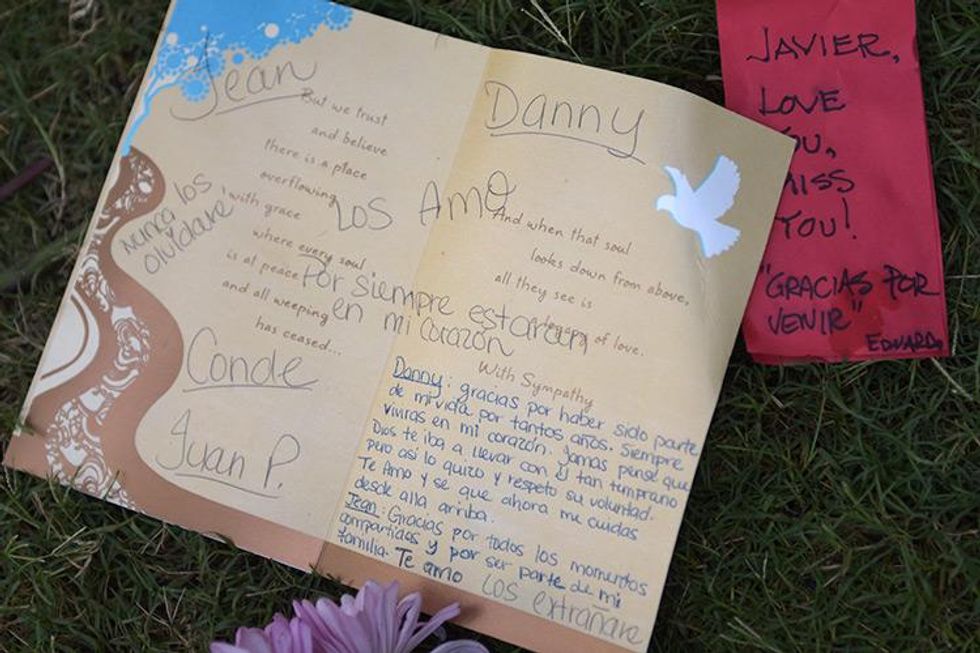 Jean
But we trust
and believe
there is a place
overflowing
with grace
where every soul
is at peace
and all weeping
has ceased...
Nunca los
olvidaré
Conde
Juan P.
Danny
LOS AMO
And when that soul
looks down from above,
all they see is
of love.
Por siempre estaran
en mi corazón
With Sympathy
Danny: gracias por haber sido parte
de mi vida por tantos años. Siempre
viviras en mi corazón. Jamas pense que
Dios te iba a llevar con El tan temprano
pero asi lo quizo y respeto su voluntad.
Te Amo y se que ahora me cuidas
desde alla arriba.
Jean: Gracias por todos los momentos
compartidos y por ser parte de mi
familia. Te amo
Los extrañare
JAVIER,
LOVE
YOU,
MISS
YOU!
"GRACIAS POR
VENIR"